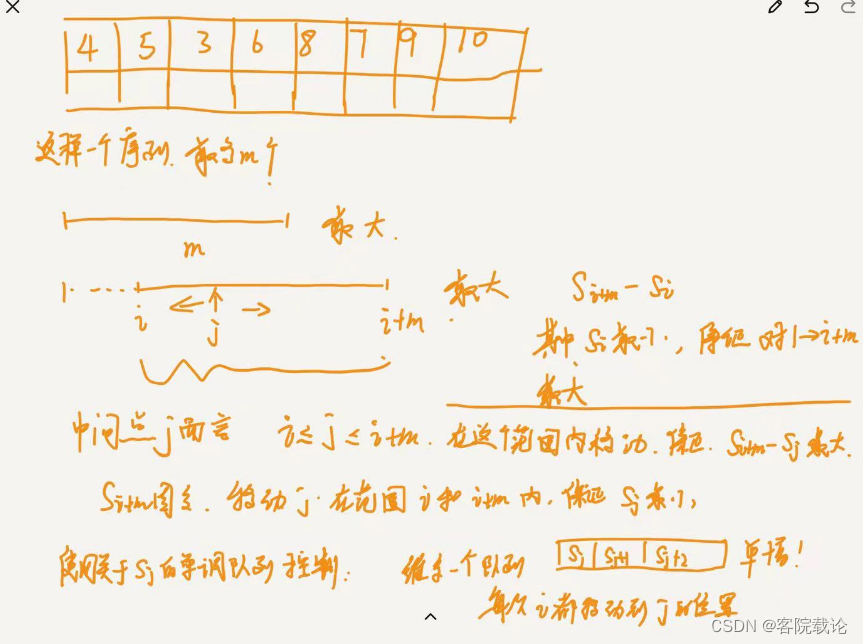 4 5 3 6 8 7 9 10
这样一个序列. 最多m个
m
最大.
i j i+m
最大 Si+m - Si
其中 Si最小, 保证 对1→i+m
最大
中间点j而言 i≤j≤i+m. 在这个范围内移动. 保证. Si+m-Sj最大.
Si+m固定. 移动j. 在范围 i和i+m内, 保证 Sj最小,
使用关于Sj的单调队列控制. 维持一个队列 Sj Sj+1 Sj+2 单增!
每次i都移动到j的位置
CSDN @客院载论